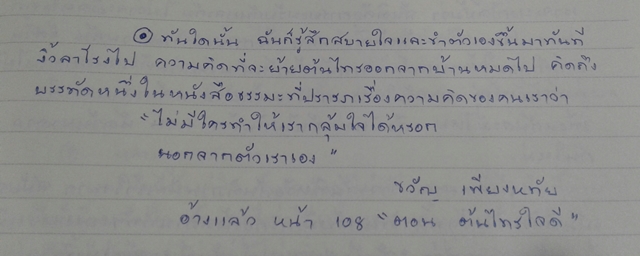 ๏ ทันใดนั้น ฉันก็รู้สึกสบายใจและขำตัวเองขึ้นมาทันที
งี่ล่าโรงไป ความคิดที่จะย้ายต้นไทรออกจากบ้านหมดไป คิดถึง
บรรทัดหนึ่งในหนังสือธรรมะที่ปรารภเรื่องความคิดของคนเราว่า
"ไม่มีใครทำให้เรากลุ้มใจได้หรอก
นอกจากตัวเราเอง"
ขวัญ เพียงหทัย
อ้างแล้ว หน้า 108 "ตอน ต้นไทรใจดี"